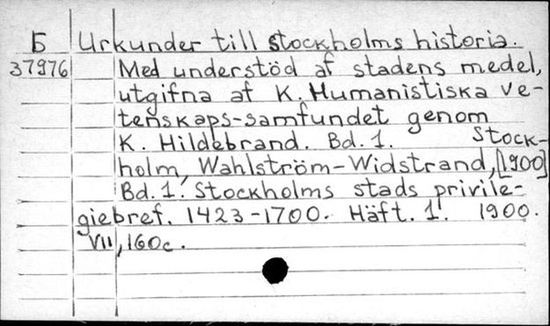 Б Urkunder till Stockholms historia.
37976 Med understöd af stadens medel,
utgifna af K. Humanistiska ve-
tenskaps-samfundet genom
K. Hildebrand. Bd. 1. Stock-
holm, Wahlström-Widstrand, [1900]
Bd. 1. Stockholms stads privile-
giebref. 1423-1700. Häft. 1. 1900.
VII, 160c.